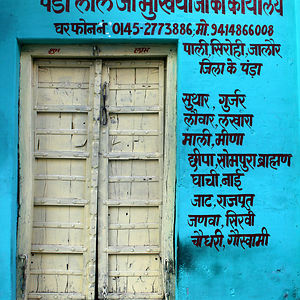 पंडा लाल जी मुखिया जी का कार्यालय
घर फोन नं 0145-2773886, मो. 9414866008
शुभ लाभ
पाली, सिरोही, जालौर
जिला के पंडा
सुथार, गुर्जर
लौवार, लखारा
माली, मीणा
छीपा, सोमपुरा, ब्राह्मण
घांची, नाई
जाट, राजपूत
जणवा, सिरवी
चौधरी, गौस्वामी